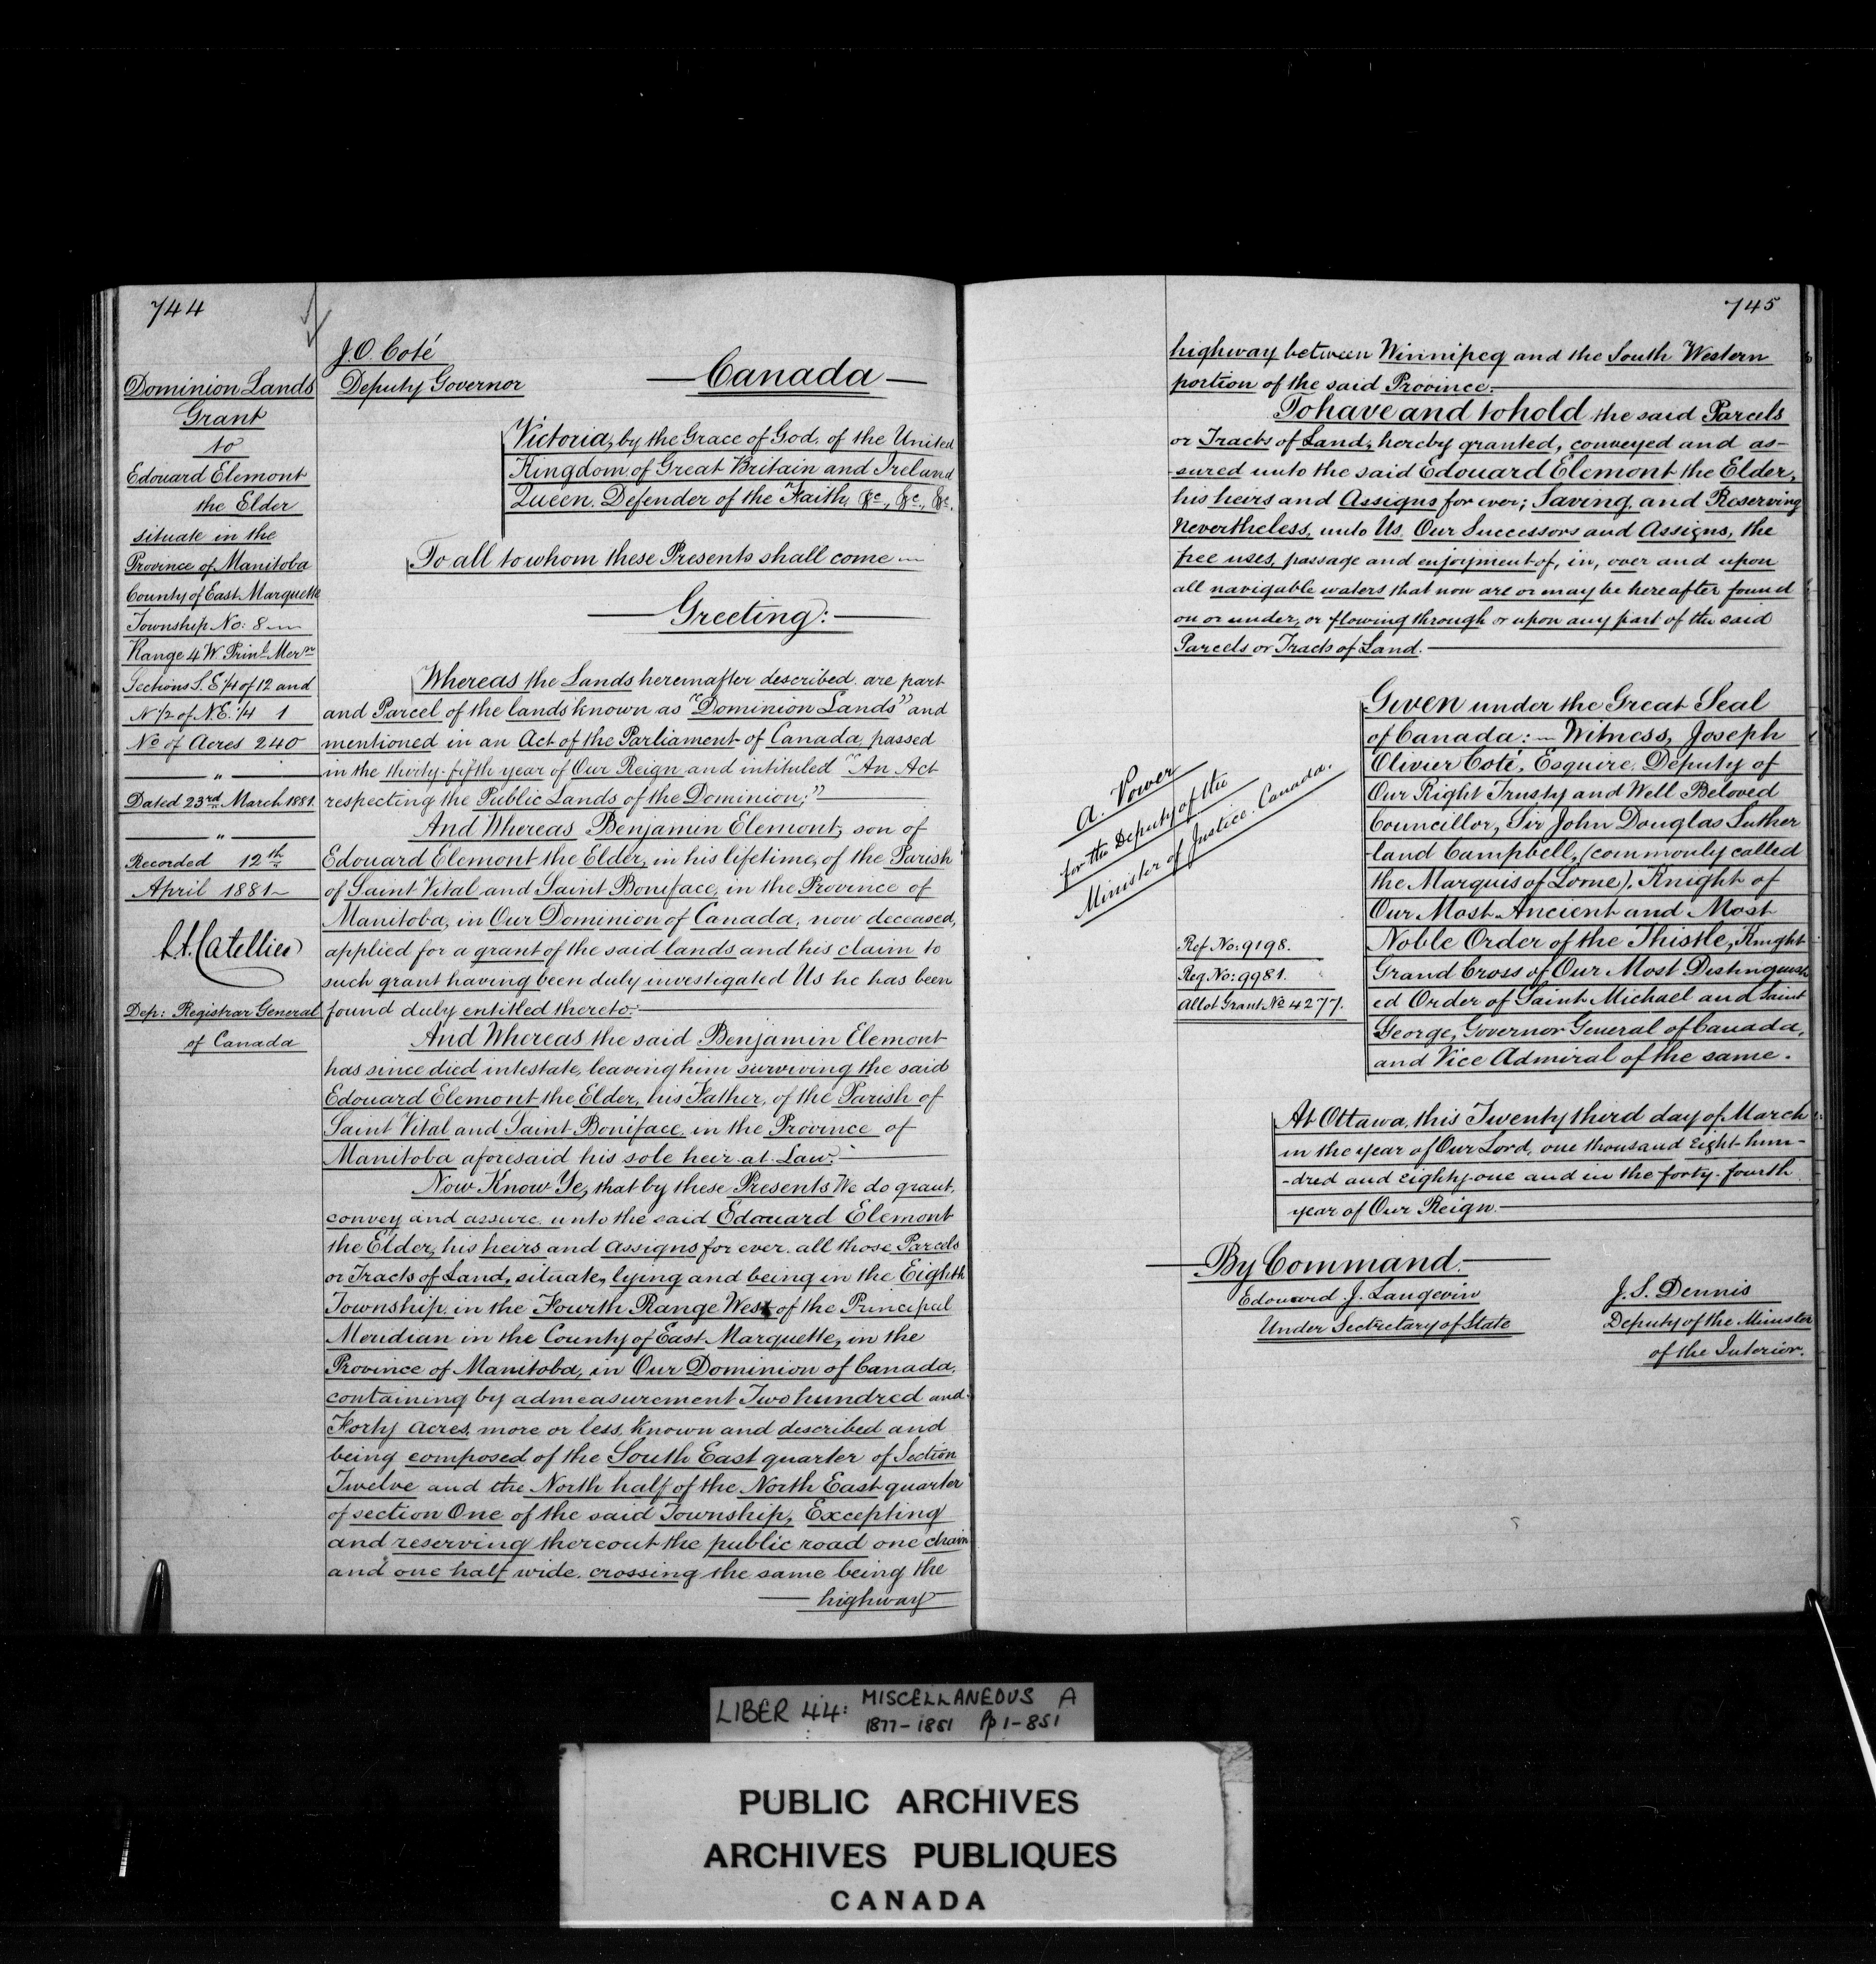 744
J.O. Coté
Deputy Governor
Dominion Lands
Grant
to
Edouard Elemont
the Elder
situate in the
Province of Manitoba
County of East Marquette
Township No: 8
Range 4 W. Prinl. Mern
Sections S.E 1/4 of 12 and
N 1/2 of N.E. 1/4 1
No of Acres 240
"
Dated 23rd March 1881.
"
Recorded 12th
April 1881
L.A. Catellier
Dep: Registrar General
of Canada
Canada
Victoria, by the Grace of God, of the United
Kingdom of Great Britain and Ireland
Queen. Defender of the Faith, &c., &c., &c.
To all to whom these Presents shall come
Greeting:
Whereas the Lands hereinafter described are part
and Parcel of the lands known as "Dominion Lands" and
mentioned in an Act of the Parliament of Canada, passed
in the thirty-fifth year of Our Reign and intituled "An Act
respecting the Public Lands of the Dominion;"
And Whereas Benjamin Elemont, son of
Edouard Elemont the Elder, in his lifetime, of the Parish
of Saint Vital and Saint Boniface, in the Province of
Manitoba, in Our Dominion of Canada, now deceased,
applied for a grant of the said lands and his claim to
such grant having been duly investigated Us he has been
found duly entitled thereto:
And Whereas the said Benjamin Elemont
has since died intestate, leaving him surviving the said
Edouard Elemont the Elder, his Father, of the Parish of
Saint Vital and Saint Boniface, in the Province of
Manitoba aforesaid his sole heir at Law:
Now Know Ye, that by these Presents We do grant,
convey and assure unto the said Edouard Elemont
the Elder, his heirs and assigns for ever. all those Parcels
or Tracts of Land, situate, lying and being in the Eighth
Township in the Fourth Range West of the Principal
Meridian in the County of East Marquette, in the
Province of Manitoba, in Our Dominion of Canada,
containing by admeasurement Two hundred and
Forty Acres, more or less, known and described and
being composed of the South East quarter of Section
Twelve and the North half of the North East quarter
of section One of the said Township, Excepting
and reserving thereout the public road one chain
and one half wide, crossing the same being the
highway
745
highway between Winnipeg and the South Western
portion of the said Province.
To have and to hold the said Parcels
or Tracts of Land, hereby granted, conveyed and as-
-sured unto the said Edouard Elemont the Elder,
his heirs and Assigns for ever; Saving and Reserving
Nevertheless, unto Us, Our Successors and Assigns, the
free uses, passage and enjoyment of, in, over and upon
all navigable waters that now are or may be hereafter found
on or under, or flowing through or upon any part of the said
Parcels or Tracts of Land.
A. Power
for the Deputy of the
Minister of Justice. Canada.
Ref No: 9198.
Reg. No: 9981.
Allot Grant No 4277.
Given under the Great Seal
of Canada: Witness, Joseph
Olivier Coté, Esquire, Deputy of
Our Right Trusty and Well Beloved
Councillor, Sir John Douglas Suther
land Campbell, (commonly called
the Marquis of Lorne), Knight of
Our Most Ancient and Most
Noble Order of the Thistle, Knight
Grand Cross of Our Most Distinguish
ed Order of Saint Michael and Saint
George, Governor General of Canada,
and Vice Admiral of the same.
At Ottawa, this Twenty third day of March
in the year of Our Lord, one thousand Eight hun-
-dred and eighty-one and in the forty-fourth
year of Our Reign.
By Command.
Edouard J. Langevin
Under Sectretary of State
J.S. Dennis
Deputy of the Minister
of the Interior.
LIBER 44: MISCELLANEOUS A
1877-1881 Pp 1-851
PUBLIC ARCHIVES
ARCHIVES PUBLIQUES
CANADA